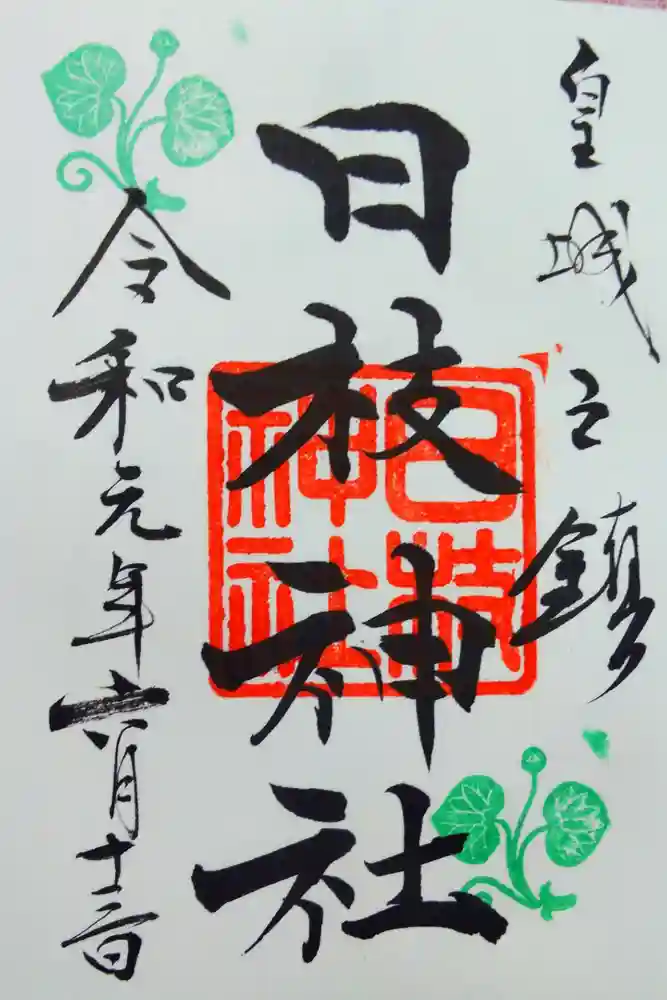 皇城之鎮
日枝神社
日枝神社
令和元年六月十二日